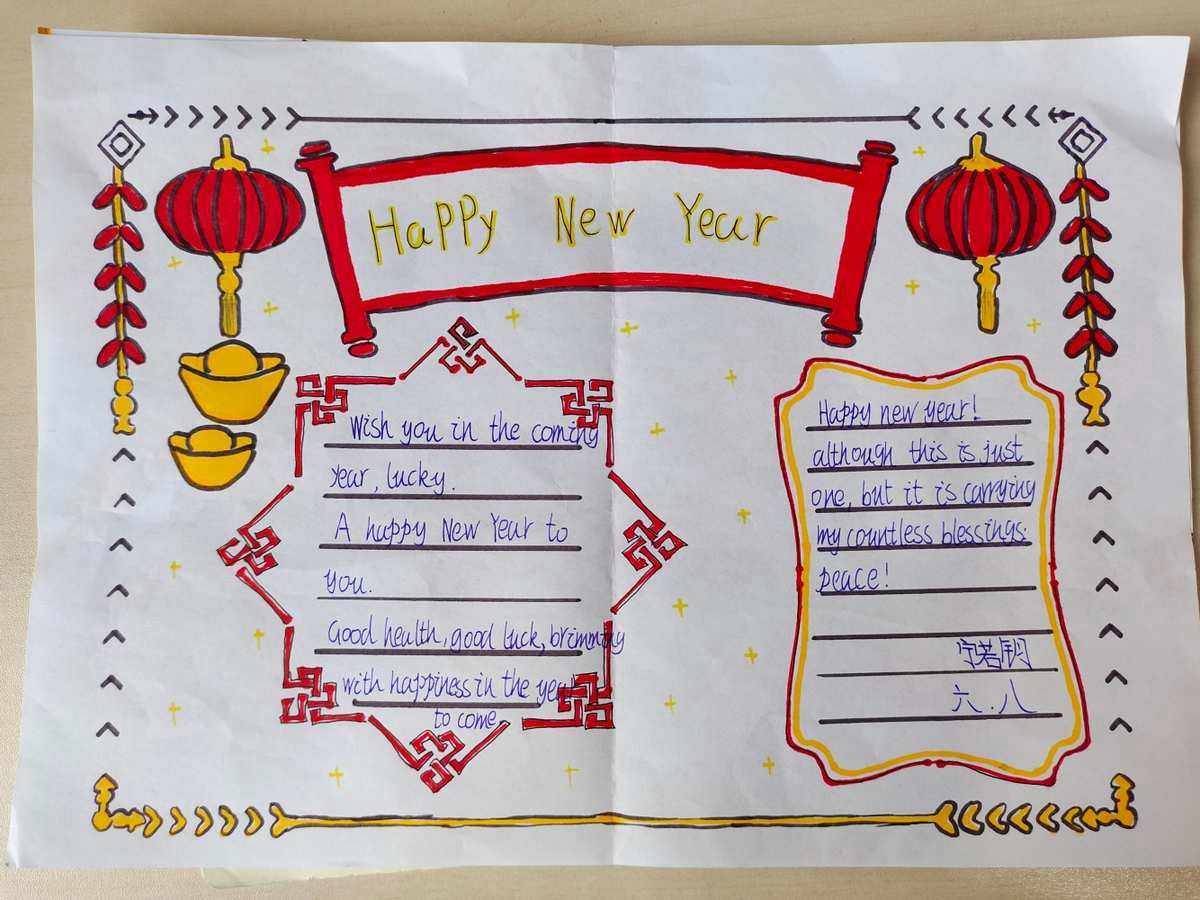 Happy New Year
Wish you in the coming
year, lucky.
A happy New Year to
you.
Good health, good luck, brimming
with happiness in the year
to come.
Happy new year!
although this is just
one, but it is carrying
my countless blessings:
peace!
六.八